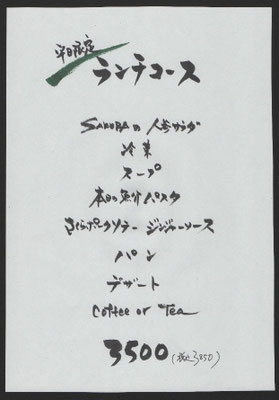 平日限定
ランチコース
SAKURAの人参サラダ
冷菜
スープ
本日の魚介パスタ
さくらポークソテー ジンジャーソース
パン
デザート
Coffee or Tea
3500(税込3,850)